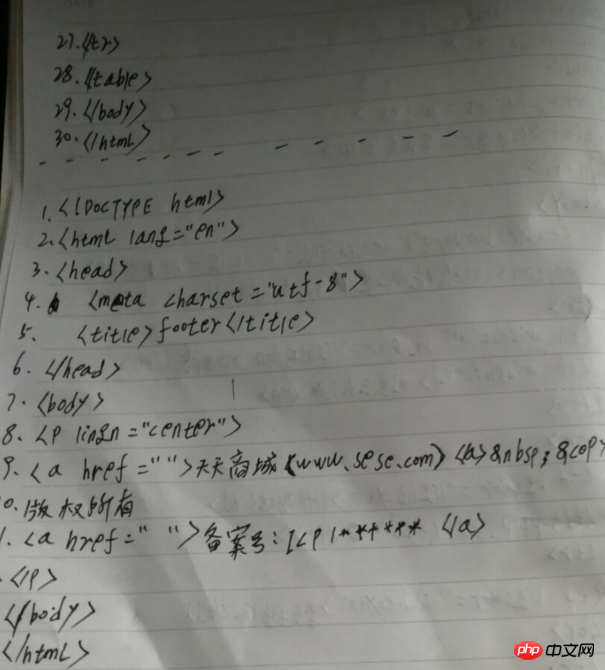 27.</tr>
28.</table>
29.</body>
30.</html>
1.<!DOCTYPE html>
2.<html lang="en">
3.<head>
4. <meta charset="utf-8">
5. <title>footer</title>
6.</head>
7.<body>
8.<p lingn="center">
9.<a href="">天天商城(www.sese.com)</a>&nbsp;&copy
0.版权所有
1.<a href=" ">备案号:ICP1****** </a>
.</p>
</body>
</html>
php中文网